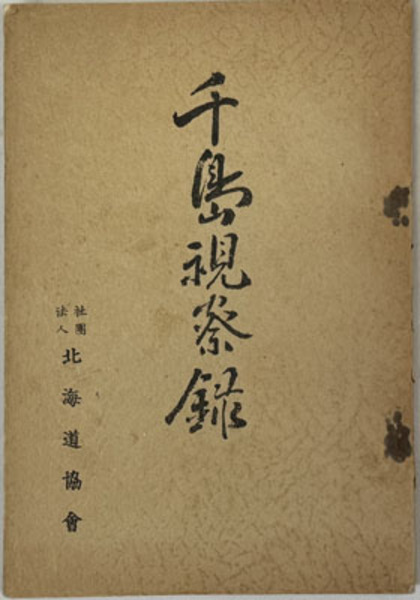 千島視察錄
社團法人
北海道協會